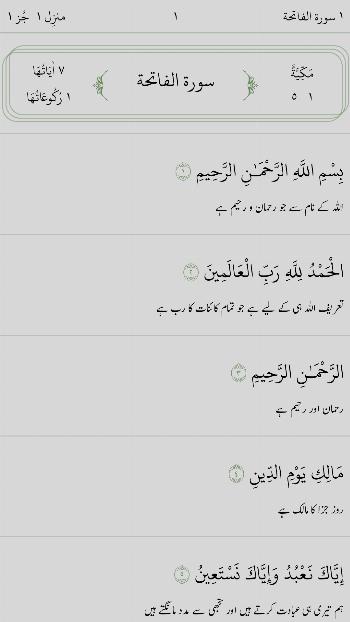 ١ سورة الفاتحة ١ منزل ١ جُز ١
مَكِيَّةٌ سورة الفاتحة ٧ اٰيَاتُهَا
١ ٥ ١ رُكُوعَاتُهَا
بِسْمِ اللَّهِ الرَّحْمَـٰنِ الرَّحِيمِ ١
اللہ کے نام سے جو رحمان و رحیم ہے
الْحَمْدُ لِلَّهِ رَبِّ الْعَالَمِينَ ٢
تعریف اللہ ہی کے لیے ہے جو تمام کائنات کا رب ہے
الرَّحْمَـٰنِ الرَّحِيمِ ٣
رحمان اور رحیم ہے
مَالِكِ يَوْمِ الدِّينِ ٤
روز جزا کا مالک ہے
إِيَّاكَ نَعْبُدُ وَإِيَّاكَ نَسْتَعِينُ ٥
ہم تیری ہی عبادت کرتے ہیں اور تجھی سے مدد مانگتے ہیں